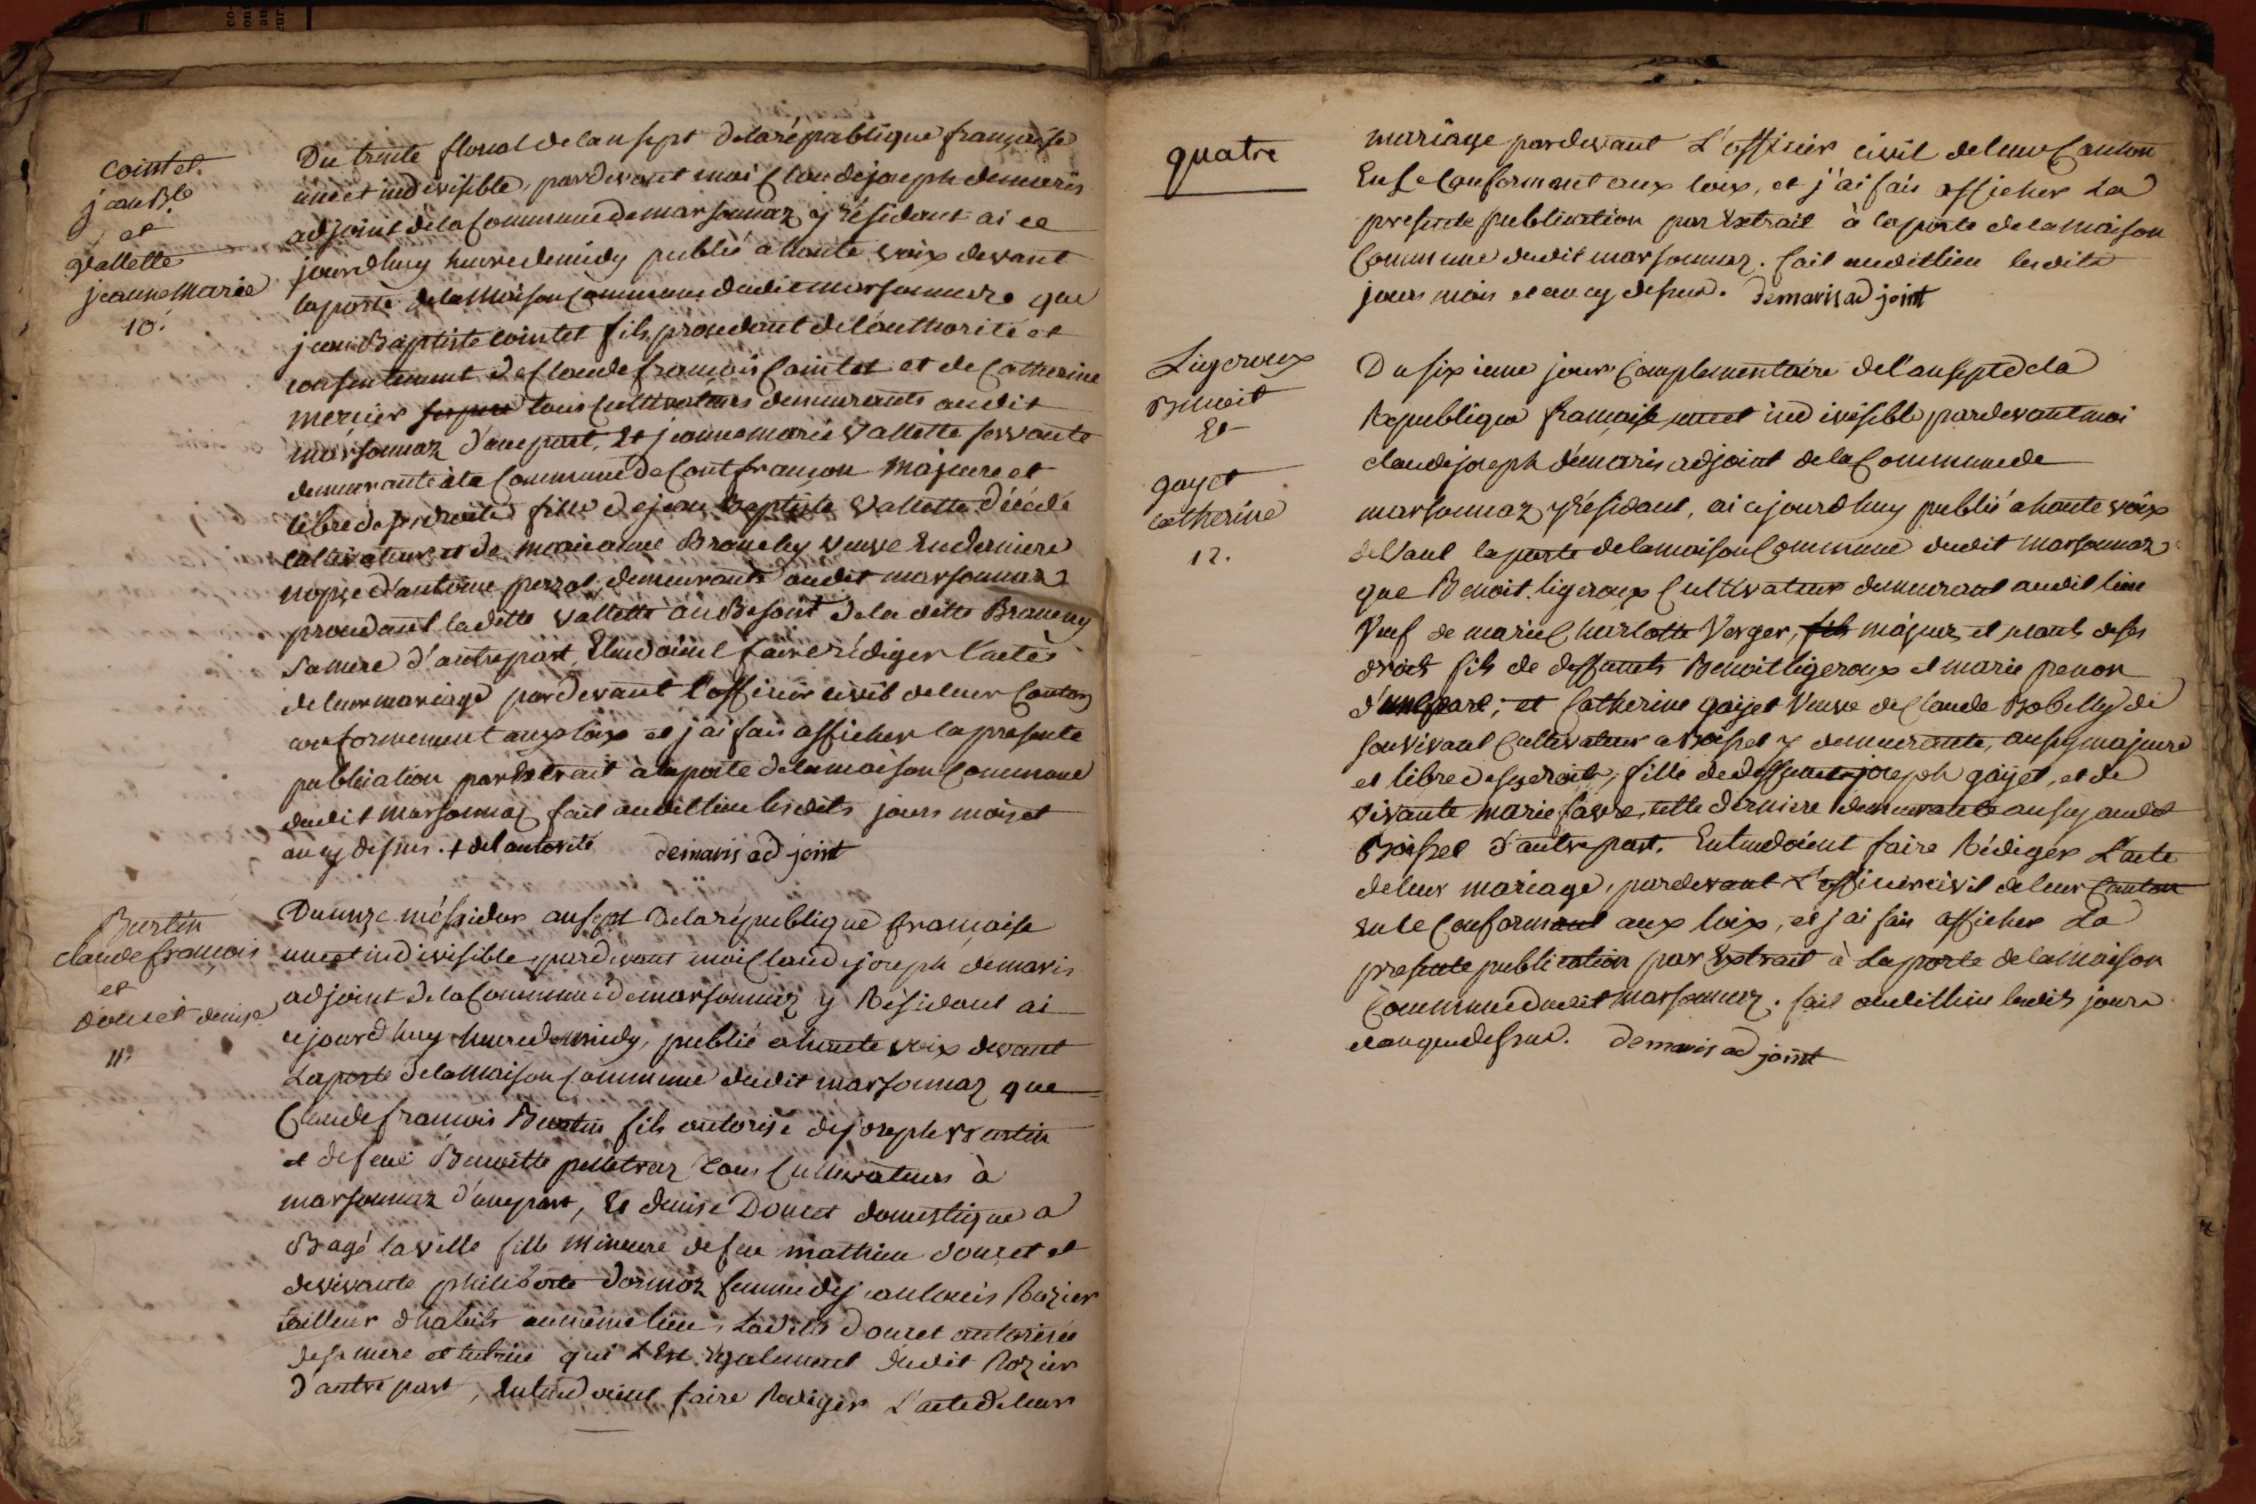 cointet
jean Bte
et
vallette
jeanne marie
10.
Du trente floreal de lan sept de la république française
une et indivisible, pardevant moi Claude joseph demaris
adjoint de la Commune de marsonnaz y résidant ai ce
jourdhuy heure de midy publié a haute voix devant
la porte de la Maison Commune dudit marsonnaz que
jean Baptiste cointet fils, procedant de l'authorité et
consentement de Claude françois Cointet et de Catherine
mercier tous Cultivateurs demeurants audit
marsonnaz d'une part, Et jeanne marie vallette servante
demeurante à la Commune de Confrançon Majeure et
libre de ses droits fille de jean Baptiste vallette décédé
cultivateur et de marianne Brouchy veuve En derniere
nopçe d'antoine perrat, demeurante audit marsonnaz
procedant la ditte vallette au Besoint de la ditte
sa mere d'autre part, Entendoient faire rédiger l'acte
de leur mariage pardevant l'officier civil de leur Canton
conformement aux loix et j'ai fais afficher la presente
publication par Extrait à la porte de la maison Commune
dudit marsonnaz fait audit lieu lesdits jours mois et
an cy dessus. + de l'autorité demaris adjoint
Burtin
claude françois
et
doucet denise
11e
Du onze méssidor an sept De la république française
une et indivisible, pardevant moi Claude joseph demaris
adjoint de la Commune de marsonnaz y Résidant ai
cejourdhuy heure de midy, publié a haute voix devant
La porte de la Maison Commune dudit marsonnaz que
Claude françois Burtin fils autorisé de joseph Burtin
et de feue Benoitte pelletraz tous Cultivateurs à
marsonnaz d'une part, Et denise Doucet domestique a
Bagé la ville fille Mineure de feu mathieu doucet et
de vivante philiberte Dormoz femme de jean louis Rozier
tailleur d'habits au même lieu, Ladite doucet autorisée
de sa mere et tutrice qui L'Est également dudit Rozier
d'autre part, Entendoient faire Rediger L'acte de leur
quatre
mariage pardevant L'officier civil de leur Canton
En se Conformant aux loix, et j'ai fais afficher La
presente publication par Extrait à la porte de la maison
Commune dudit marsonnaz. fait audit lieu lesdits
jours mois et an cy dessus. demaris adjoint
Ligeroux
Benoit
Et
gayet
catherine
12.
Du sixieme jour Complementaire de l'an sept de la
Republique française, une et indivisible pardevant moi
claude joseph démaris adjoint de la Commune de
marsonnaz y Résidant, ai cejourdhuy publié a haute voix
devant la porte de la maison Commune dudit marsonnaz
que Benoit ligeroux Cultivateur demeurant audit lieu
Veuf de marie Charlotte Verger, fils majeur et usant de ses
droits fils de deffunts Benoit ligeroux et marie
d'une part; et Catherine gayet Veuve de Claude Bobilly de
son vivant Cultivateur a Boissel y demeurante, aussy majeure
et libre de ses droits, fille de deffunt joseph gayet, et de
vivante marie favre, cette derniere demeurante aussy audit
Boissel d'autre part. Entendoient faire Rédiger L'acte
de leur mariage, pardevant L'officier civil de leur Canton
En se Conformant aux loix, et j'ai fais afficher La
presente publication par Extrait à La porte de la maison
Commune dudit marsonnaz. fait audit lieu lesdits jours
et an que dessus. demaris adjoint